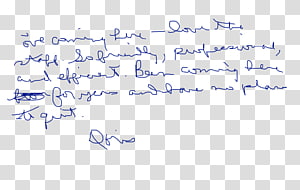 love coming here - love the
staff. So friendly, professional,
and efficient. Been coming here
for years and have no plan
to quit.